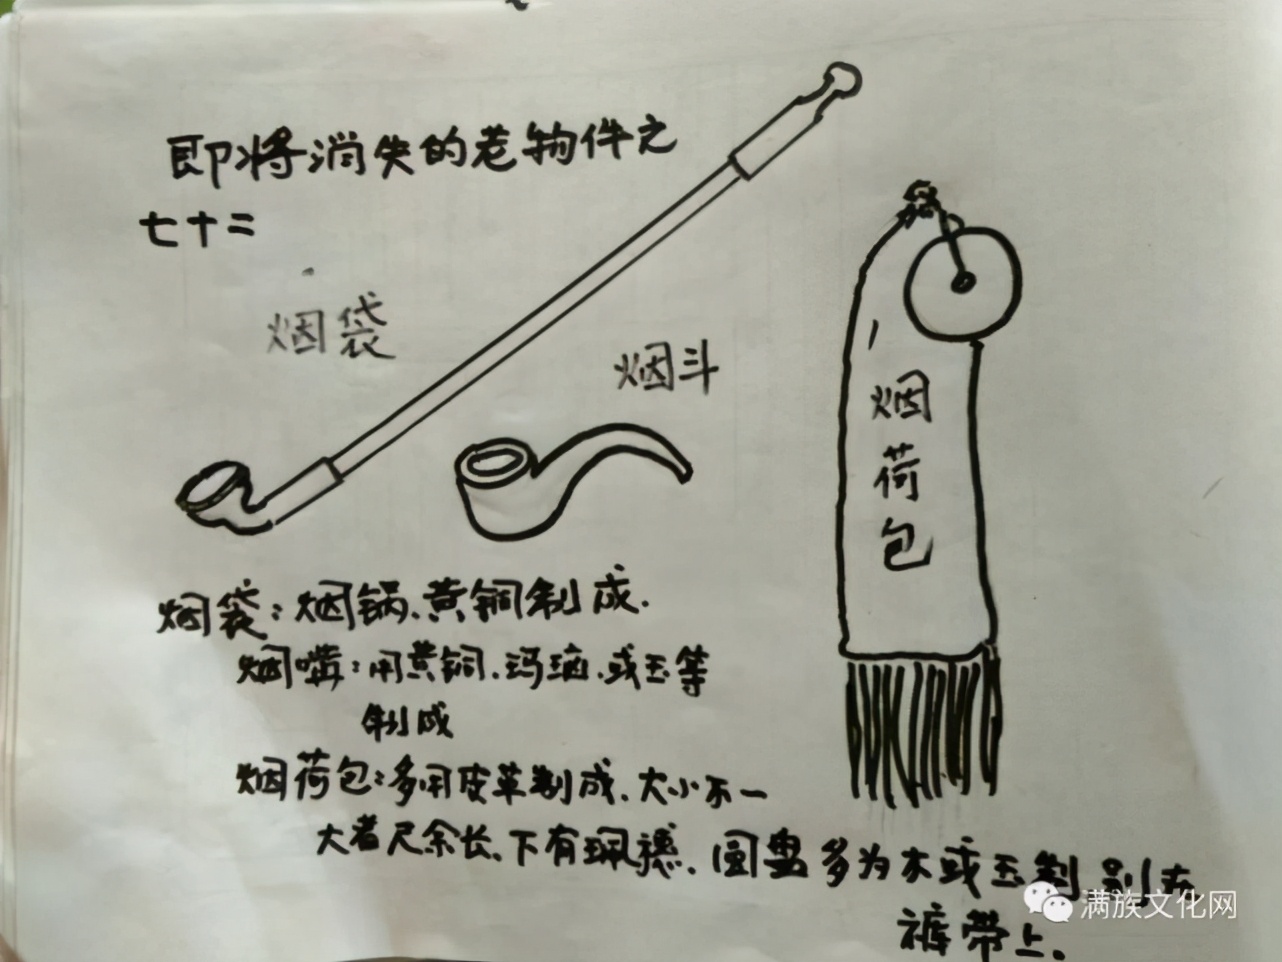 即将消失的老物件之
七十二
烟袋
烟斗
烟荷包
烟袋：烟锅、黄铜制成.
烟嘴：用黄铜、玛瑙、或玉等
制成
烟荷包：多用皮革制成、大小不一
大者尺余长、下有珮穗、圆盘多为木或玉制 别在
裤带上.
满族文化网